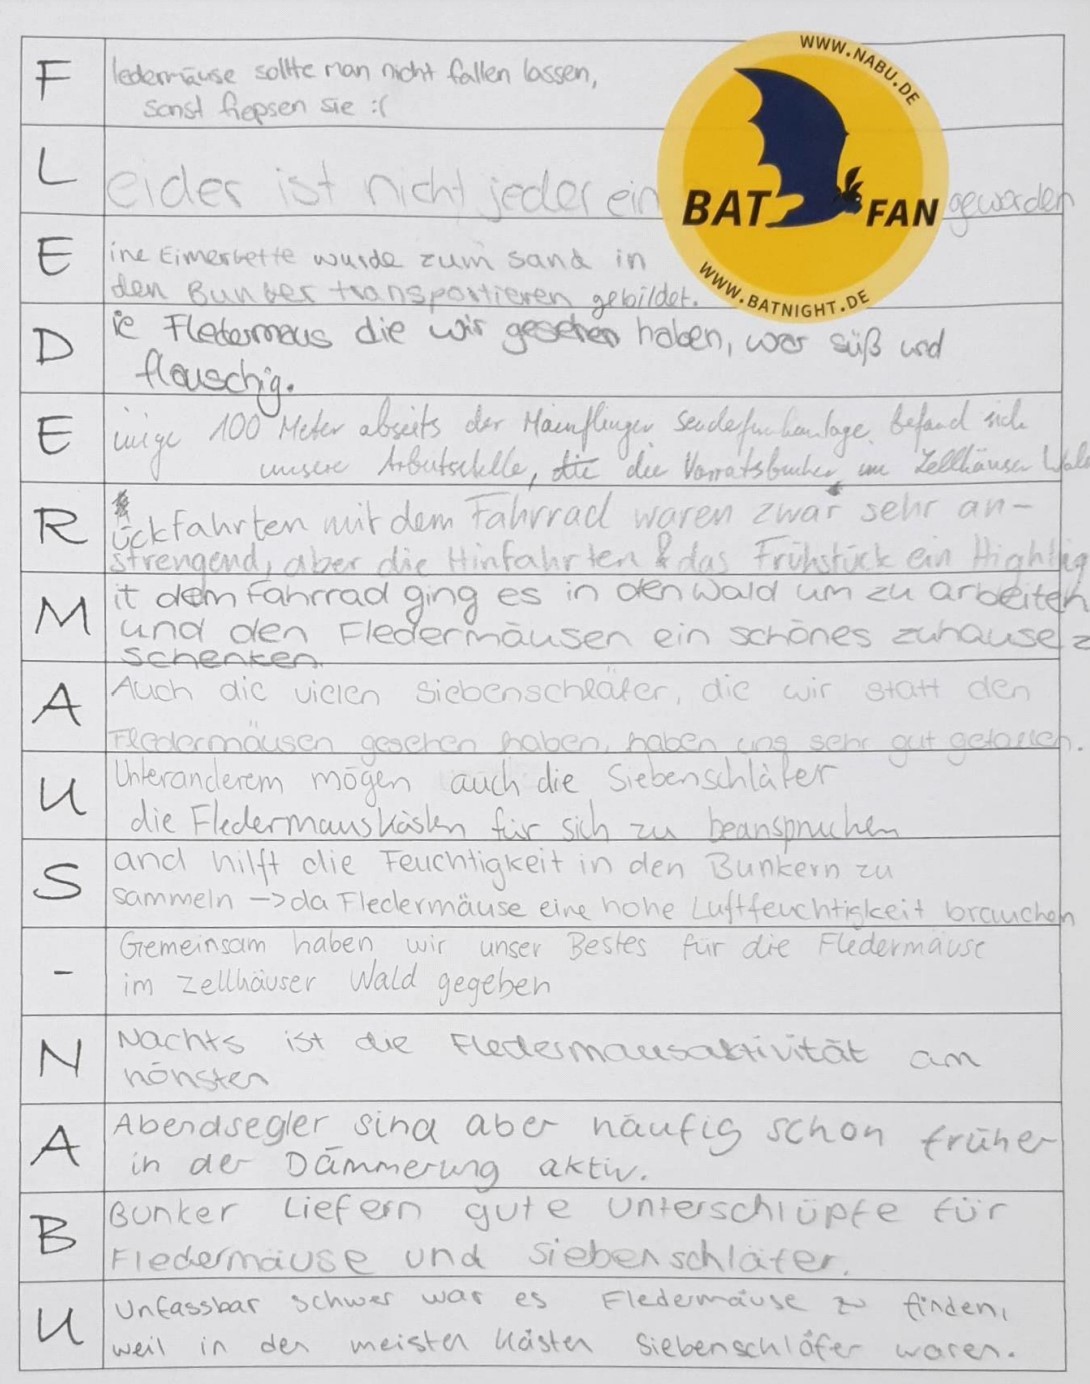 F ledermäuse sollte man nicht fallen lassen,
sonst fiepsen sie :(
WWW.NABU.DE
L eider ist nicht jeder ein BAT FAN geworden
WWW.BATNIGHT.DE
E ine Eimerkette wurde zum sand in
den Bunker transportieren gebildet.
D ie Fledermaus die wir gesehen haben, war süß und
flauschig.
E inige 100 Meter abseits der Mainflinger Sendefunkanlage befand sich
unsere Arbeitsstelle, die die Vorratsbunker im Zellhäuser Wald
R ückfahrten mit dem Fahrrad waren zwar sehr an-
strengend, aber die Hinfahrten & das Frühstück ein Highlig
M it dem Fahrrad ging es in den Wald um zu arbeiten
und den Fledermäusen ein schönes zuhause z
schenken.
A Auch die vielen Siebenschläfer, die wir statt den
Fledermäusen gesehen haben, haben uns sehr gut gefallen.
U Unteranderem mögen auch die Siebenschläfer
die Fledermauskästen für sich zu beanspruchen
S and hilft die Feuchtigkeit in den Bunkern zu
sammeln -> da Fledermäuse eine hohe Luftfeuchtigkeit brauchen
- Gemeinsam haben wir unser Bestes für die Fledermäuse
im Zellhäuser Wald gegeben
N Nachts ist die Fledermausaktivität am
höhsten
A Abendsegler sind aber häufig schon früher
in der Dämmerung aktiv.
B Bunker Liefern gute Unterschlüpfe für
Fledermäuse und Siebenschläfer.
U Unfassbar schwer war es Fledermäuse zu finden,
weil in den meisten Kästen Siebenschläfer waren.